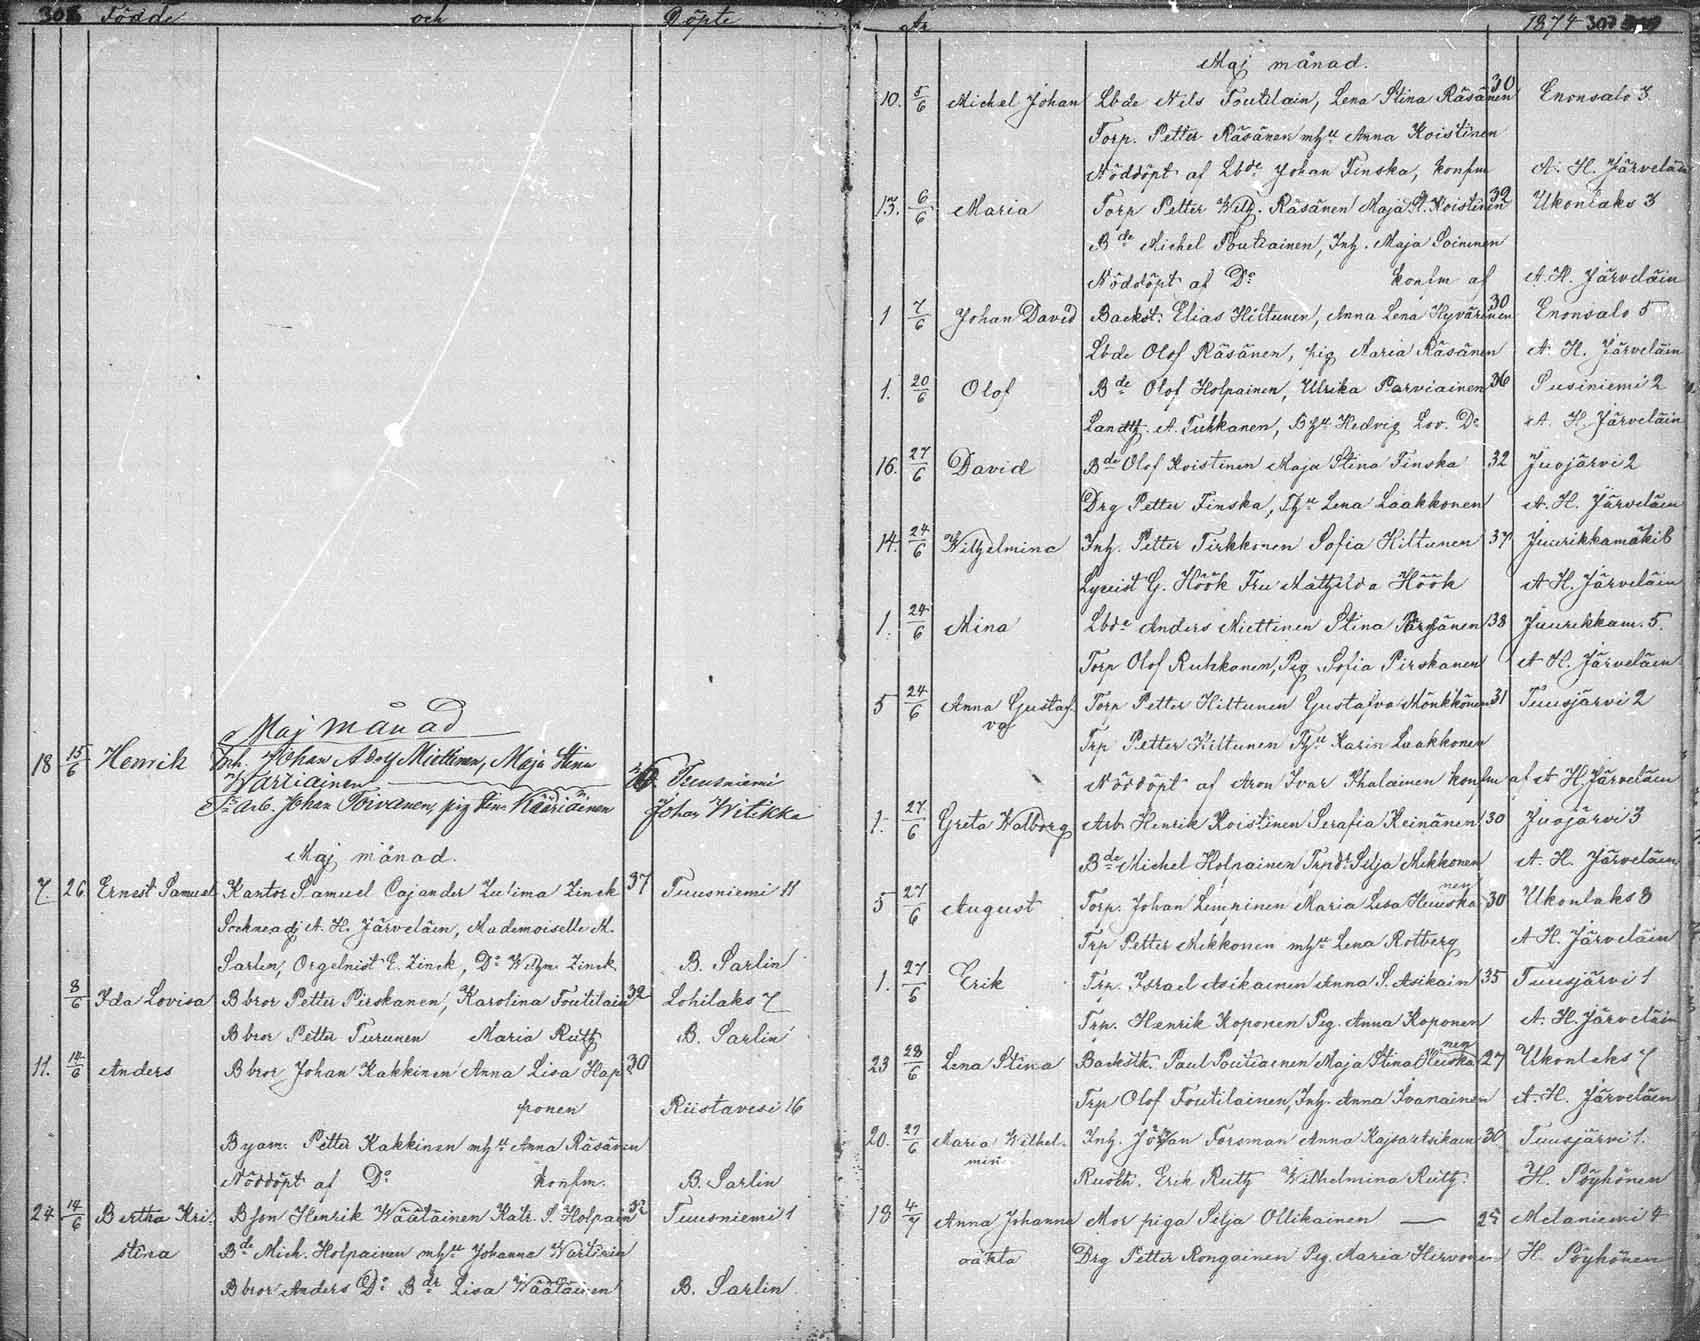 306 Födde och Döpte
Maj månad
18 15/6 Henrik Inh. Johan Adolf Miettinen, Maja Stina
Wartiainen Tuusniemi
Arb. Johan Toivanen, pig Stina Kääriäinen Johan Witikka
Maj månad.
7. 26 Ernest Samuel Kantor Samuel Cajander Zulima Zinck 37 Tuusniemi 11
Sockneadj A. H. Järveläin, Mademoiselle M.
Sarlin, Orgelnist E. Zinck, Do Wilhm. Zinck B. Sarlin
8/6 Ida Lovisa Bbror Petter Pirskanen, Karolina Toutilain 32 Lohilaks 7
Bbror Petter Turunen Maria Ruth B. Sarlin
11. 14/6 Anders Bbror Johan Kakkinen Anna Lisa Hap 30
ponen Riistavesi 16
Byam. Petter Kakkinen mhu Anna Räsänen
Nöddöpt af Do konfm. B. Sarlin
24 14/6 Bertha Kri- Bson Henrik Wäätäinen Katr. S. Holpain 32 Tuusniemi 1
stina Bde Mich. Holpainen mhu Johanna Wartinin
Bbror Anders Do Bdr Lisa Wäätäinen B. Sarlin
År 1874 307
Maj månad.
10. 5/6 Michel Johan Lbde Nils Toutilain, Lena Stina Räsänen 30 Enonsalo 3
Torp. Petter Räsänen mhu Anna Koistinen
Nöddöpt af Lbde Johan Finska, konfm A. H. Järveläin
13. 6/6 Maria Torp Petter Wilh. Räsänen Maja St. Koistinen 39 Ukonlaks 3
Bde Michel Poutiainen, Inh. Maja Soininen
Nöddöpt af Do konfm af A. H. Järveläin
1 7/6 Johan David Backst. Elias Hiltunen, Anna Lena Hyvärinen 30 Enonsalo 5
Lbde Olof Räsänen, pig Maria Räsänen A. H. Järveläin
1. 20/6 Olof Bde Olof Holpainen, Ulrika Parviainen 36 Susiniemi 2
Landth. A. Tuhkanen, Bhu Hedvig Lov. Do A. H. Järveläin
16. 27/6 David Bde Olof Koistinen Maja Stina Finska 32 Juojärvi 2
Drg Petter Finska, Thu Lena Laakkonen A. H. Järveläin
14. 24/6 Wilhelmina Inh. Petter Tirkkonen Sofia Hiltunen 37 Juurikkamäki 8
Lyceist G. Höök Fru Mathilda Höök A. H. Järveläin
1. 24/6 Mina Lbde Anders Miettinen Stina 38 Juurikkam. 5.
Torp Olof Ruhkanen, Pig. Sofia Pirskanen A. H. Järveläin
5 24/6 Anna Gustaf- Torp Petter Hiltunen Gustafva Mönkkönen 31 Tuusjärvi 2
va
Trp Petter Hiltunen Thu Karin Laakkonen
Nöddöpt af Aron Ivar Ihalainen konfm af A. H. Järveläin
1. 27/6 Greta Walborg Arb Henrik Koistinen Serafia Keinänen 30 Juojärvi 3
Bde Michel Holpainen Trpdr Silja Mikkonen A. H. Järveläin
5 27/6 August Torp. Johan Limpinen Maria Lisa Huuskanen 30 Ukonlaks 8
Trp Petter Mikkonen mhu Lena Rotberg A. H. Järveläin
1. 27/6 Erik Trp. Israel Asikainen Anna S. Asikain 35 Tuusjärvi 1
Trp. Henrik Koponen Pig. Anna Koponen A. H. Järveläin
23 28/6 Lena Stina Backstk. Paul Poutiainen Maja Stina Huuskanen 27 Ukonlaks 7
Trp Olof Toutilainen, Inh. Anna Ivanainen A. H. Järveläin
20. 27/6 Maria Wilhel- Inh. Johan Forsman Anna Kajsa Asikain 30 Tuusjärvi 1.
min
Rusth. Erik Ruth Wilhelmina Ruth. H. Pöyhönen
18 4/7 Anna Johanna Mor piga Silja Ollikainen — 25 Melaniemi 4
oäkta Drg Petter Rongainen Pig. Maria Hirvonen H. Pöyhönen